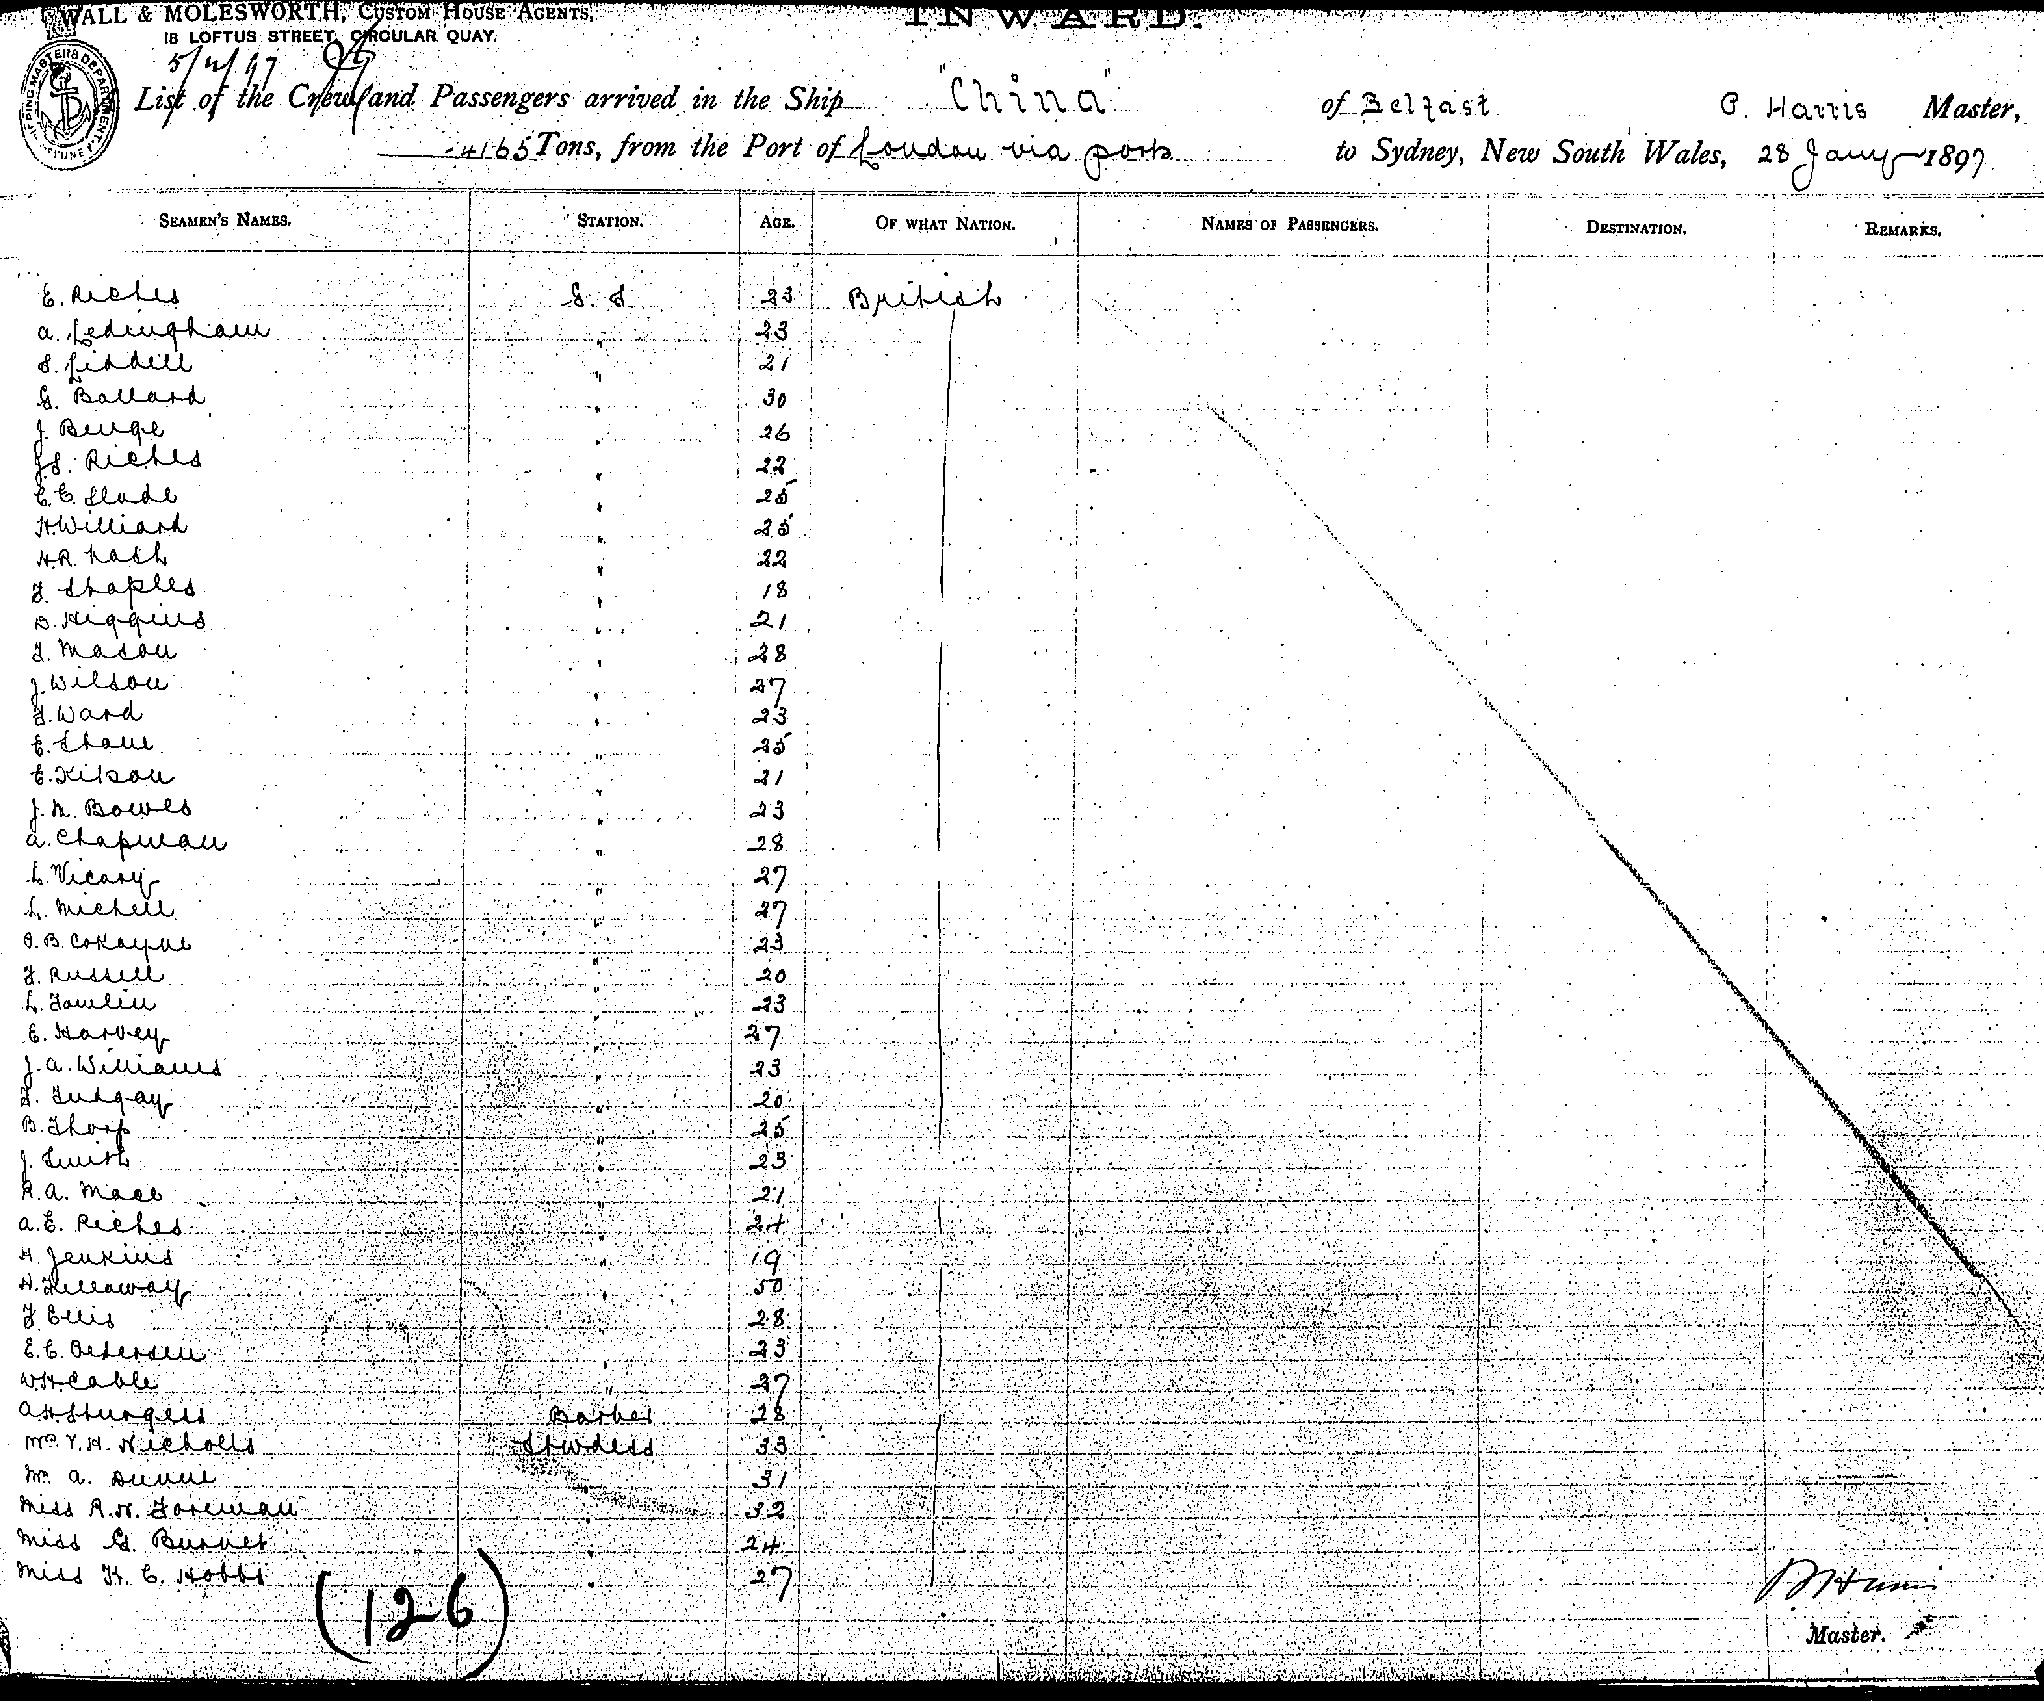 WALL & MOLESWORTH, CUSTOM HOUSE AGENTS,
INWARD.
18 LOFTUS STREET, CIRCULAR QUAY.
List of the Crew and Passengers arrived in the Ship "China" of Belfast P. Harris Master,
4165 Tons, from the Port of London via ports to Sydney, New South Wales, 28 Jany 1897
SEAMEN'S NAMES. STATION. AGE. OF WHAT NATION. NAMES OF PASSENGERS. DESTINATION. REMARKS.
E. Riches G. S 23 British
A. Ledingham " 23
S. Liddell " 21
G. Ballard " 30
J. Benge " 26
J.S. Riches " 22
C. C. Slade " 25
H. Williard " 25
H.R. Nash " 22
F. Staples " 18
B. Higgins " 21
F. Mason " 28
J. Wilson " 27
F. Ward " 23
E. Shaul " 25
E. Kitson " 21
J. N. Bowles " 23
A. Chapman " 28
L. Vicary " 27
L. Michell " 27
P. B. Cokayne " 23
F. Russell " 20
L. Tomlin " 23
E. Harvey " 27
J. A. Williams " 23
F. Tudgay " 20
B. Thorp " 25
J. Smith " 23
R. A. Mace " 21
A. E. Riches " 24
H. Jenkins " 19
H. Kellaway " 50
F. Ellis " 28
E. C. Petersen " 23
W.H. Cable " 27
A H Sturgess Barber 28
Mrs. V. H. Nicholls Stwdess 33
Mrs. A. Dunne " 31
Miss R. N. Foreman " 32
Miss G. Burnet " 24
Miss K. C. Hobbs " 27
(126)
P. Harris
Master.